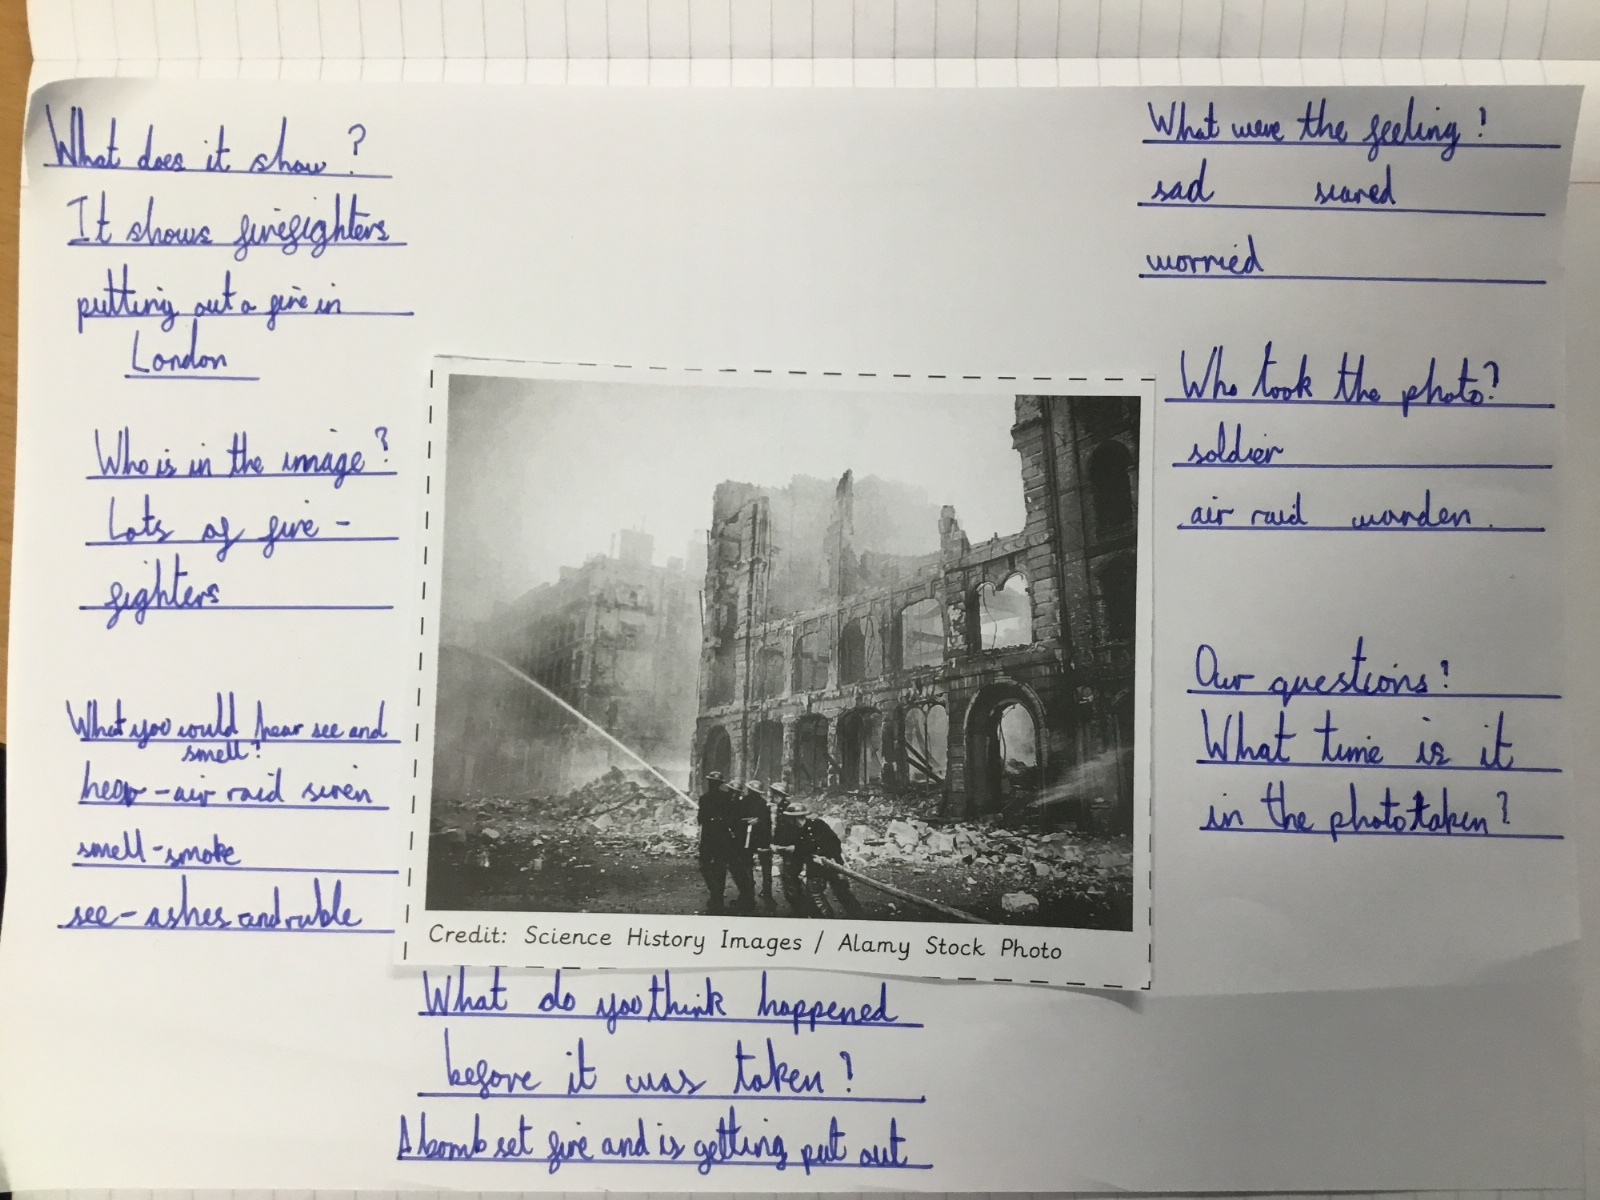 What does it show?
It shows firefighters
putting out a fire in
London
Who is in the image?
Lots of fire-
fighters
What you would hear see and
smell?
hear - air raid siren
smell - smoke
see - ashes and ruble
Credit: Science History Images / Alamy Stock Photo
What do you think happened
before it was taken?
A bomb set fire and is getting put out
What were the feeling?
sad scared
worried
Who took the photo?
soldier
air raid warden.
Our questions?
What time is it
in the photo taken?